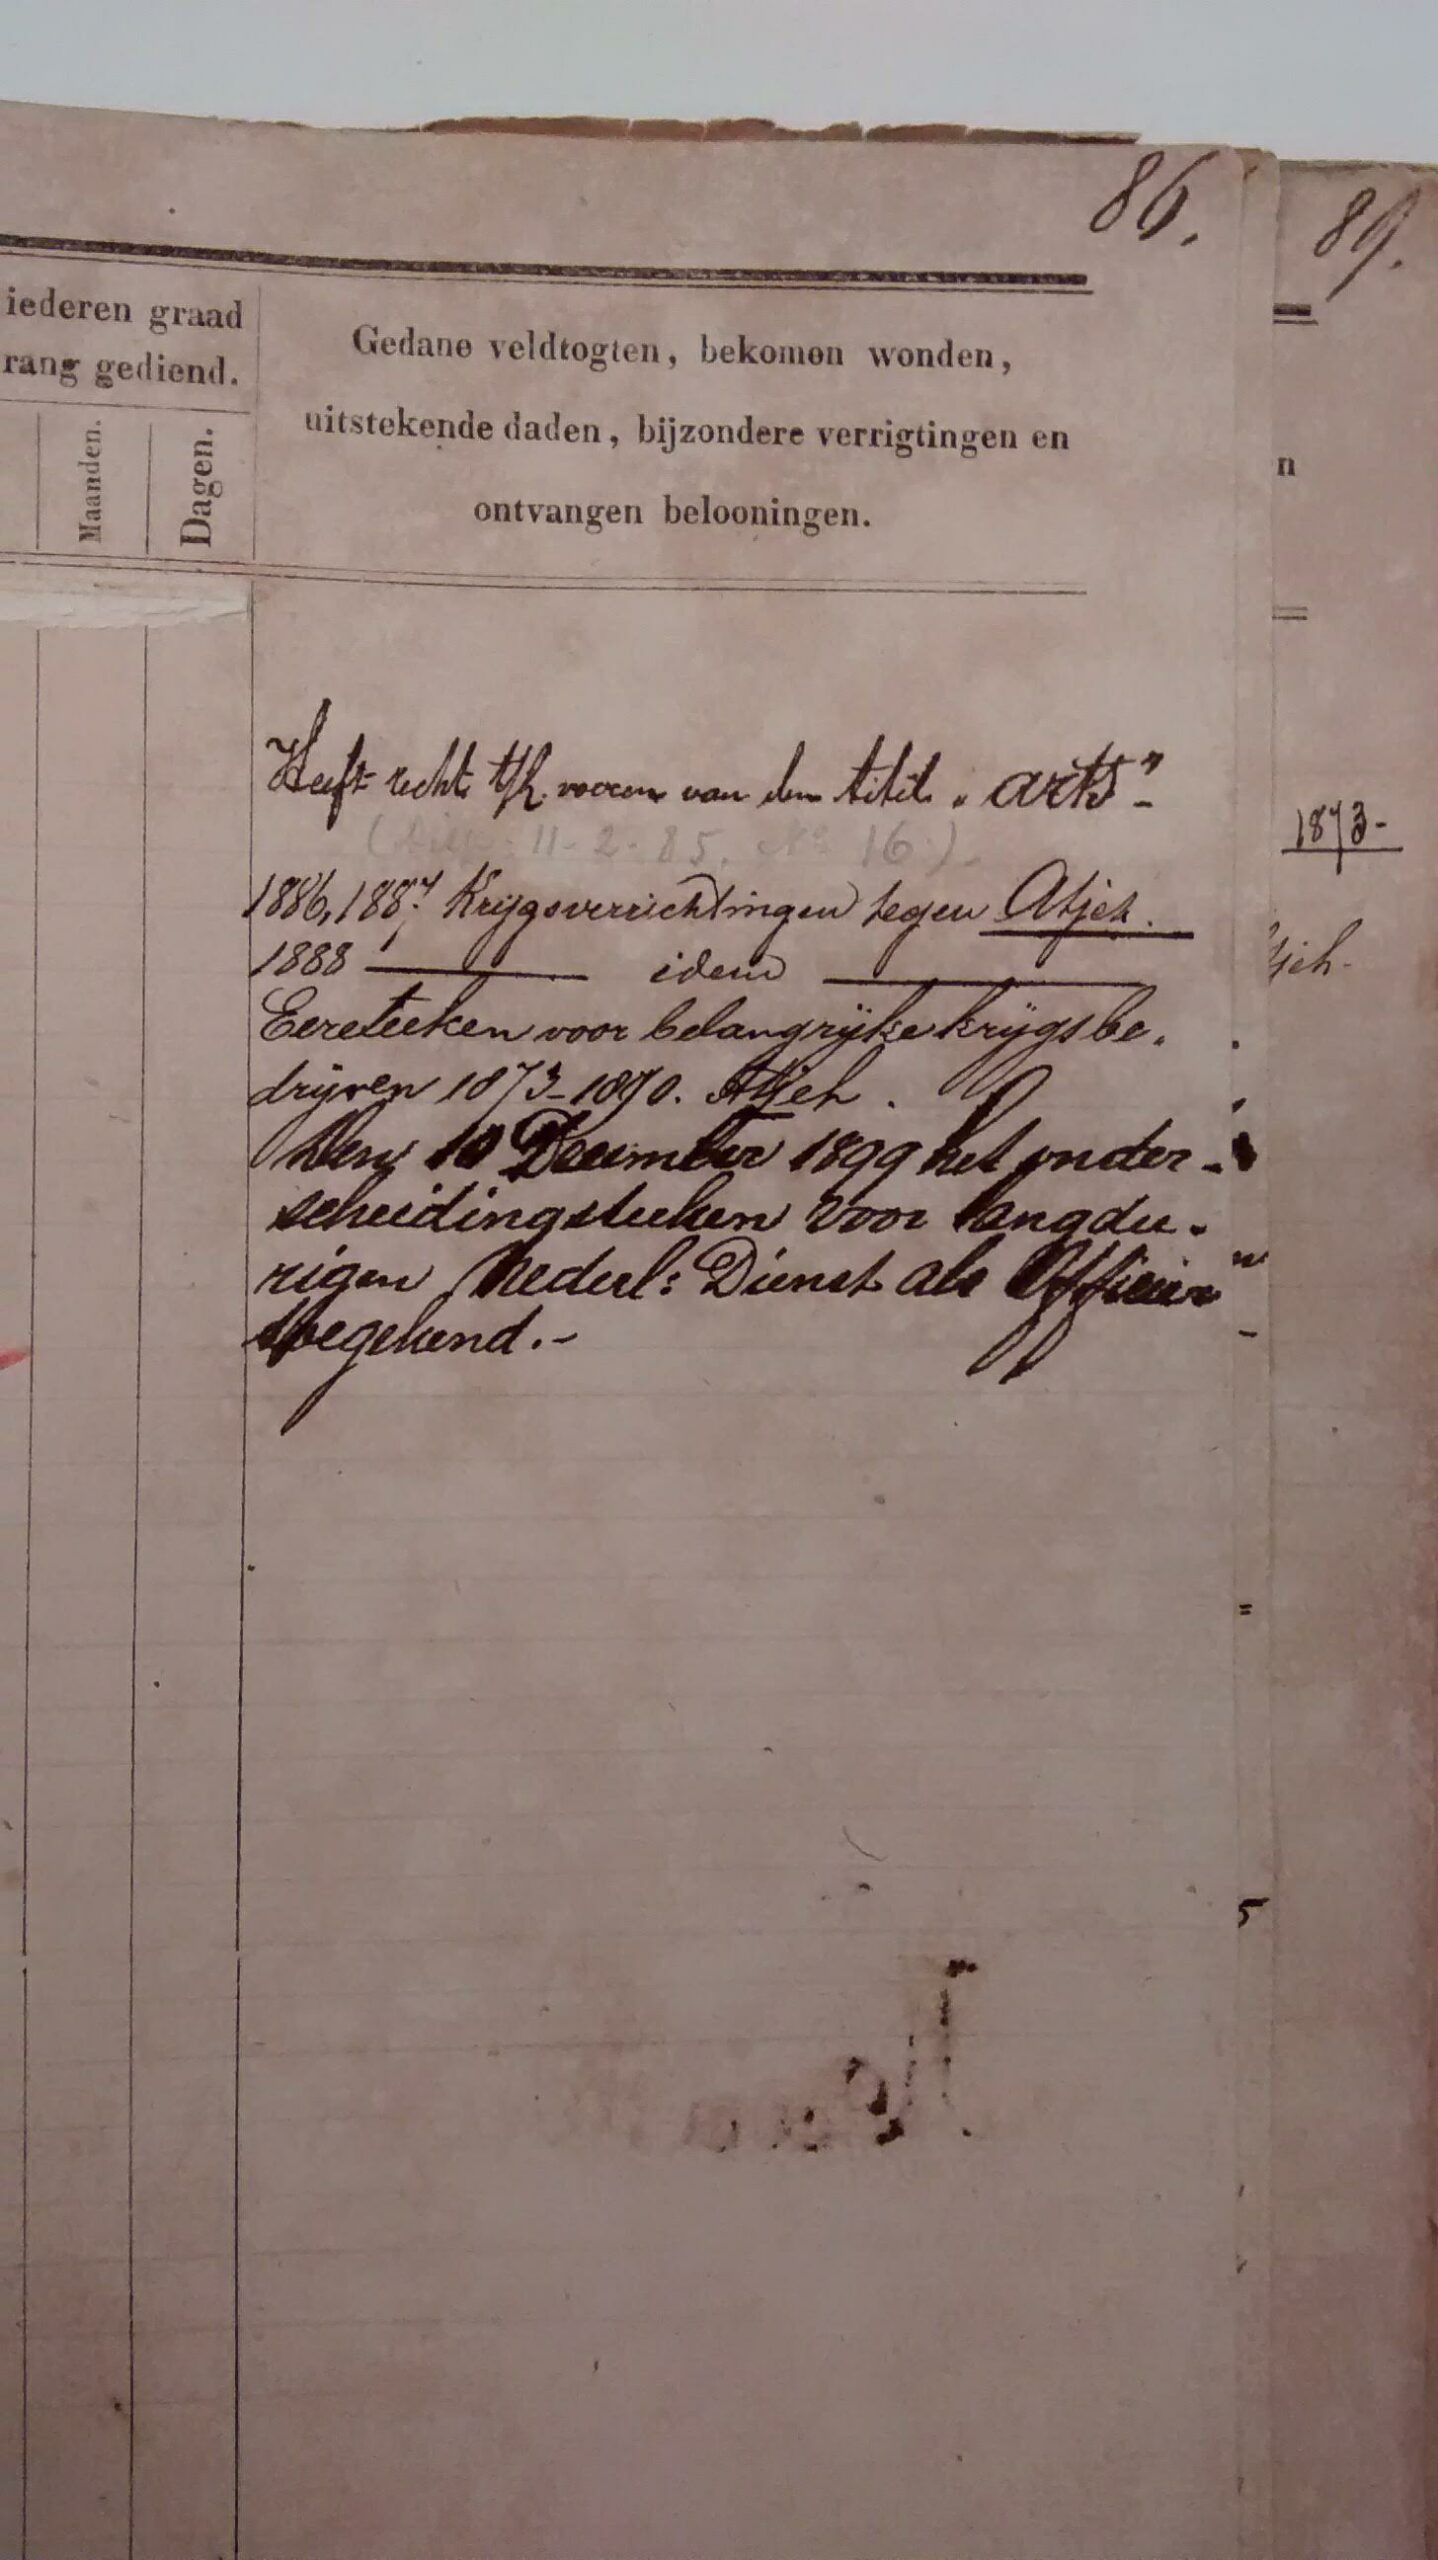 86.
89.
iederen graad
rang gediend.
Maanden.
Dagen.
Gedane veldtogten, bekomen wonden,
uitstekende daden, bijzondere verrigtingen en
ontvangen belooningen.
n
Heeft recht t/h voeren van den titel „arts"-
( 11-2-85. No 16).
1873-
1886, 1887 Krijgsverrichtingen tegen Atjeh.
1888 — idem —
jeh-
Eereteeken voor belangrijke krijgsbe-
drijven 1873-1890. Atjeh.
Den 10 December 1899 het onder-
scheidingsteeken voor langdu-
rigen Nederl: Dienst als Officier
toegekend.-
5